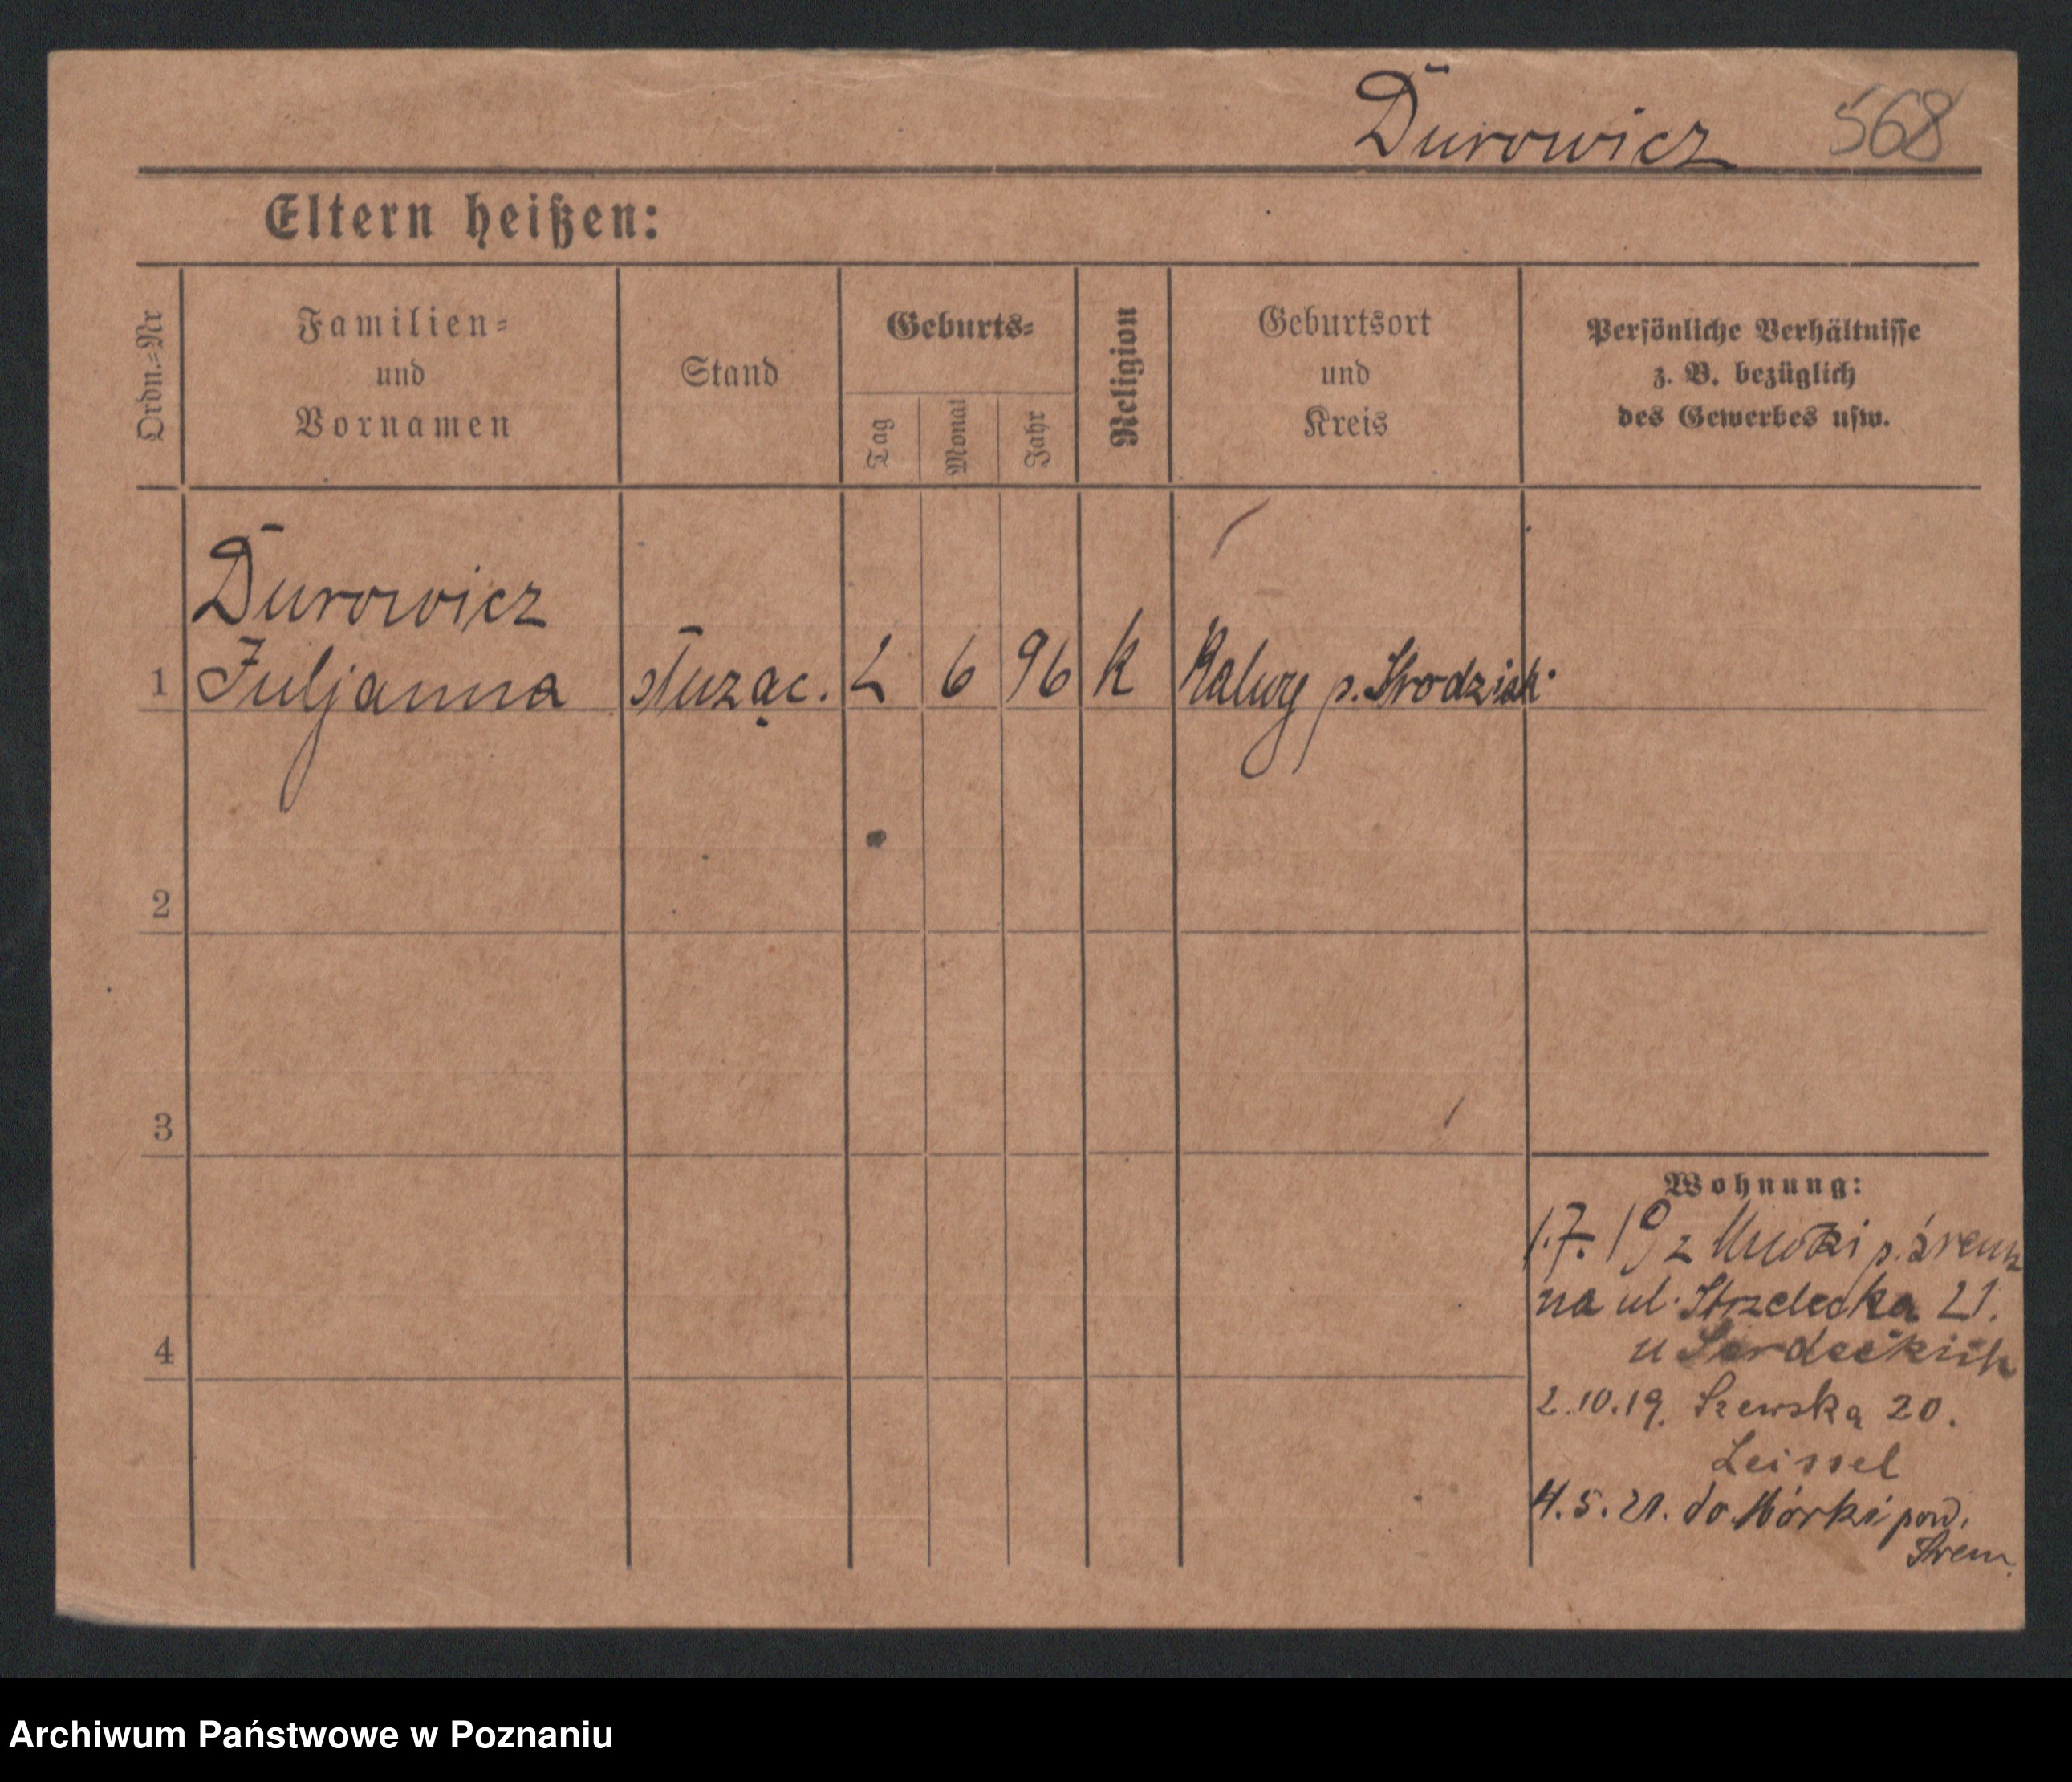 Durowicz 568
Eltern heißen:
Ordn.-Nr
Familien-
und
Vornamen
Stand
Geburts-
Tag
Monat
Jahr
Religion
Geburtsort
und
Kreis
Persönliche Verhältnisse
z. B. bezüglich
des Gewerbes usw.
Durowicz
1 Juljanna służąc. 2 6 96 k p.
2
3
4
Wohnung:
1.7.19 z p. śrems
na ul. Strzelecka 21.
u
2.10.19. Szewska 20.
Leissel
4.5.21. do Mórki pow.
Śrem.
Archiwum Państwowe w Poznaniu